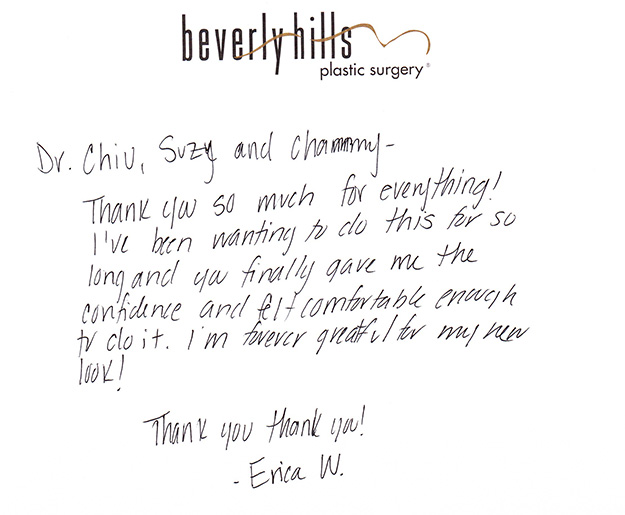 beverly hills
plastic surgery®
Dr. Chiu, Suzy and Chammy-
Thank you so much for everything!
I've been wanting to do this for so
long and you finally gave me the
confidence and felt comfortable enough
to do it. I'm forever greatful for my new
look!
Thank you thank you!
- Erica W.